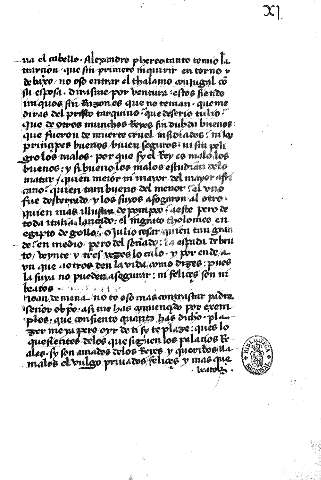 XJ
na el cabello. Alexandro phereo tanto temio la
traycion que sin primero inquirir en torno y
debaxo no oso entrar el thalamo conjugal cõ
su esposa. Dirasme por ventura estos siendo
iniquos sin Razon es que no teman. que me
diras del prisco tarquino. que de seruio tulio.
que de otros munchos Reyes sin dubda buenos
que fueron de muerte cruel insidiados. ni los
principes buenos biuen seguros ni sin peli
gro los malos. por que sy el Rey es malo los
buenos. y si bueno los malos estudian de lo
matar. quien mejor ni mayor del mayor afri
cano. quien tam bueno del menor. el vno
fue desterrado y los suyos afogaron al otro.
quien mas illustre de pompeo. a este pero de
toda italia lançado. el ingrato tholomeo en
egipto de gollo. o julio cesar quien tan gran
de. en medio pero del senado la espada de bru
to. veynte y tres vezes lo calo. y por ende a
vn que otros den la vida como dizes. pues
la suya no pueden asegurar. ni felices son ni
beatos.
Joan de mena. no te oso mas contrastar padre
señor obpo. asi me has conuencido por exem
plos. que consiento quanto has dicho. pla
zer me ya pero oyr de ti sy te plaze. ques lo
que sientes de los que siguen los palacios Re
ales. sy son amados de los Reyes y queridos lla
males el vulgo priuados felices y mas que
beatos.
BIBLIOTECA